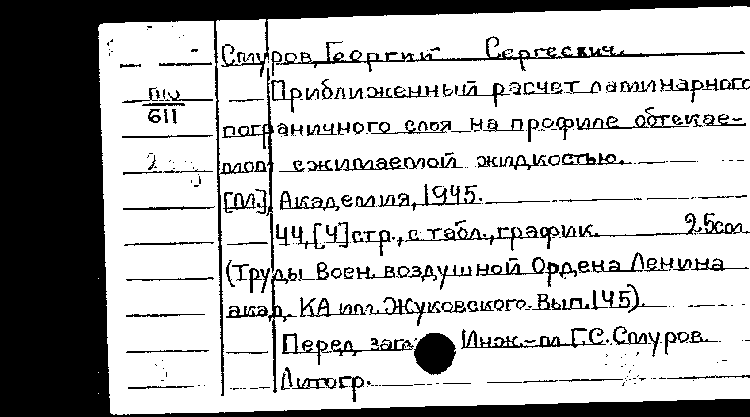 Стуров, Георгий Сергеевич.
Приближенный расчет ламинарного
пограничного слоя на профиле обтекае-
мом сжимаемой жидкостью.
[М.], Академия, 1945.
44, [4] стр., с табл., график. 25см
(Труды Воен. воздушной Ордена Ленина
акад. КА им. Жуковского. Вып. 145).
Перед загл. Инж.-м Г.С. Стуров.
Литогр.
611
2